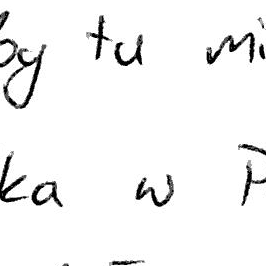 by tu mi
ka w P